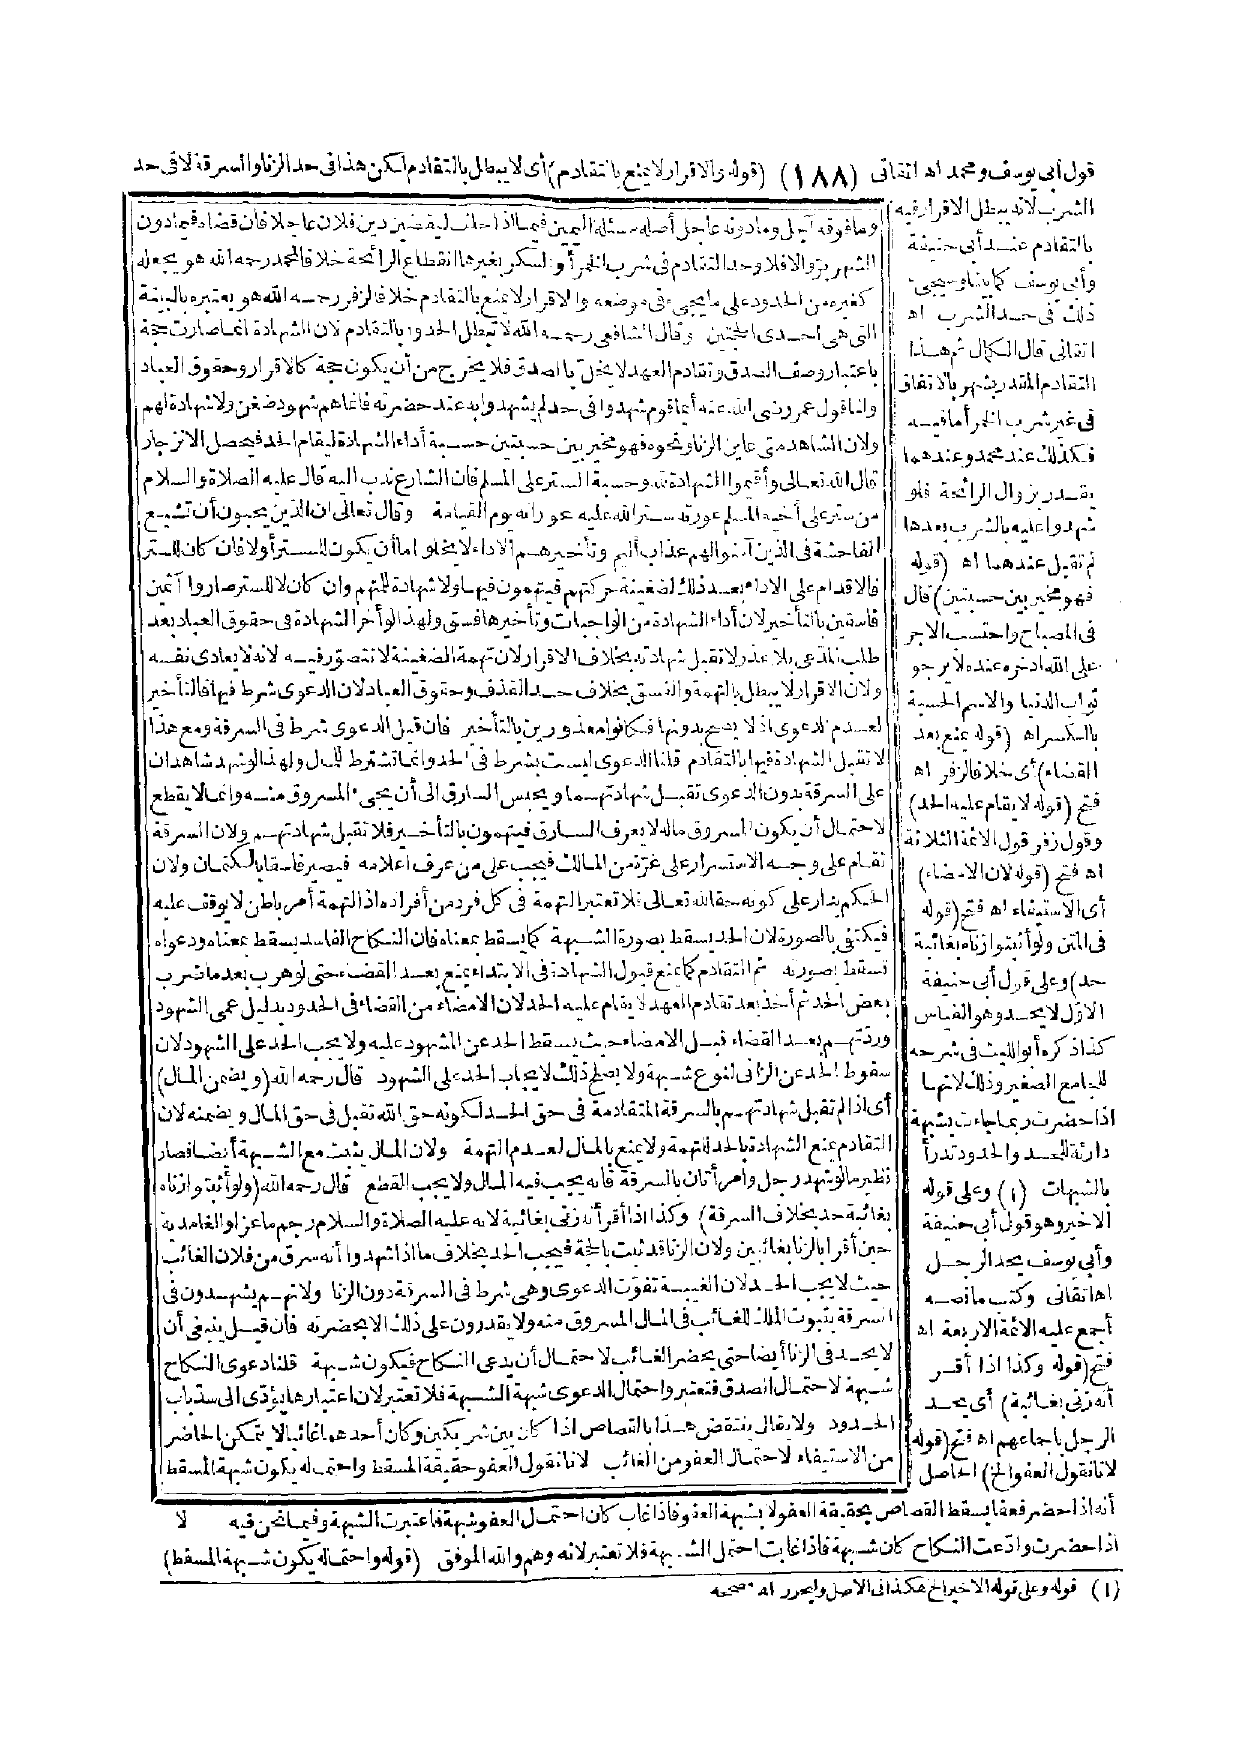 قول أبى يوسف ومحمد اه اتقانى (١٨٨) (قوله والاقرار لا يمنع بالتقادم) أى لا يبطل بالتقادم لكن هذا فى حد الزنا والسرقة لا فى حد
الشرب لانه يبطل الاقرار فيه
بالتقادم عند أبى حنيفة
وأبى يوسف كما بيناه وسيجىء
ذلك فى حد الشرب اه
اتقانى قال الكمال ثم هذا
التقادم المقدر بشهر بالاتفاق
فى غير شرب الخمر أما فيه
فكذلك عند محمد وعندهما
يقدر بزوال الرائحة فلو
شهدوا عليه بالشرب بعدها
لم تقبل عندهما اه (قوله
فهو مخير بين حسبتين) قال
فى المصباح واحتسب الاجر
على الله ادخره عنده لا يرجو
ثواب الدنيا والاسم الحسبة
بالكسر اه (قوله يمنع بعد
القضاء) أى خلافا لزفر اه
فتح (قوله لا يقام عليه الحد)
وقول زفر قول الائمة الثلاثة
اه فتح (قوله لان الامضاء)
أى الاستيفاء اه فتح (قوله
فى المتن ولو أثبتوا زناه بغائبة
حد) وعلى قول أبى حنيفة
الاول لا يحد وهو القياس
كذا ذكره أبو الليث فى شرحه
للجامع الصغير وذلك لانها
اذا حضرت ربما جاءت بشبهة
دارئة للحد والحدود تدرأ
بالشبهات (١) وعلى قوله
الاخير وهو قول أبى حنيفة
وأبى يوسف يحد الرجل
اه اتقانى وكتب مانصه
أجمع عليه الائمة الاربعة اه
فتح (قوله وكذا اذا أقر
أنه زنى بغائبة) أى يحد
الرجل باجماعهم اه فتح (قوله
لانا نقول العفو الخ) الحاصل
وما فوقه آجل وما دونه عاجل أصله مسئلة اليمين فيما اذا حلف ليقضين دين فلان عاجلا فان قضاه فيما دون
الشهر بر والا فلا وحد التقادم فى شرب الخمر أو السكر بغيرها انقطاع الرائحة خلافا لمحمد رحمه الله هو يجعله
كغيره من الحدود على ما يجىء فى موضعه والاقرار لا يمنع بالتقادم خلافا لزفر رحمه الله هو يعتبره بالبينة
التى هى احدى الحجتين وقال الشافعى رحمه الله لا تبطل الحدود بالتقادم لان الشهادة انما صارت حجة
باعتبار وصف الصدق وتقادم العهد لا يخل بالصدق فلا يخرج من أن يكون حجة كالاقرار وحقوق العباد
ولنا قول عمر رضى الله عنه أيما قوم شهدوا فى حد لم يشهدوا به عند حضرته فانما هم شهود ضغن ولا شهادة لهم
ولان الشاهد متى عاين الزنا ونحوه فهو مخير بين حسبتين حسبة أداء الشهادة ليقام الحد فيحصل الانزجار
قال الله تعالى وأقيموا الشهادة لله وحسبة الستر على المسلم فان الشارع ندب اليه قال عليه الصلاة والسلام
من ستر على أخيه المسلم عورته ستر الله عليه عوراته يوم القيامة وقال تعالى ان الذين يحبون أن تشيع
الفاحشة فى الذين آمنوا لهم عذاب أليم وتأخيرهم الاداء لا يخلو اما أن يكون للستر أولا فان كان للستر
فالاقدام على الاداء بعد ذلك لضغينة حركتهم فيتهمون فيها ولا شهادة للمتهم وان كان لا للستر صاروا آثمين
فاسقين بالتأخير لان أداء الشهادة من الواجبات وتأخيرها فسق ولهذا لو أخر الشهادة فى حقوق العباد بعد
طلب المدعى بلا عذر لا تقبل شهادته بخلاف الاقرار لان تهمة الضغينة لا تتصور فيه لانه لا يعادى نفسه
ولان الاقرار لا يبطل بالتهمة والفسق بخلاف حد القذف وحقوق العباد لان الدعوى شرط فيها فالتأخير
لعدم الدعوى اذ لا يصح بدونها فكانوا معذورين بالتأخير فان قيل الدعوى شرط فى السرقة ومع هذا
لا تقبل الشهادة فيها بالتقادم قلنا الدعوى ليست بشرط فى الحد وانما تشترط للمال ولهذا لو شهد شاهدان
على السرقة بدون الدعوى تقبل شهادتهما ويحبس السارق الى أن يجىء المسروق منه وانما لا يقطع
لاحتمال أن يكون المسروق ماله لا يعرف السارق فيتهمون بالتأخير فلا تقبل شهادتهم ولان السرقة
تقام على وجه الاستسرار على غرة من المالك فيجب على من عرف اعلامه فيصير فاسقا بالكتمان ولان
الحكم يدار على كونه حقا لله تعالى فلا تعتبر التهمة فى كل فرد من أفراده اذ التهمة أمر باطن لا يوقف عليه
فيكتفى بالصورة لان الحد يسقط بصورة الشبهة كما يسقط بمعناه فان النكاح الفاسد يسقط بمعناه ودعواه
تسقط بصورته ثم التقادم كما يمنع قبول الشهادة فى الابتداء يمنع بعد القضاء حتى لو هرب بعد ما شرب
بعض الحد ثم أخذ بعد تقادم العهد لا يقام عليه الحد لان الامضاء من القضاء فى الحدود بدليل عمى الشهود
وردتهم بعد القضاء قبل الامضاء حيث يسقط الحد عن المشهود عليه ولا يجب الحد على الشهود لان
سقوط الحد عن الزانى لنوع شبهة ولا يصلح ذلك لايجاب الحد على الشهود قال رحمه الله (ويضمن المال)
أى اذا لم تقبل شهادتهم بالسرقة المتقادمة فى حق الحد لكونه حق الله تقبل فى حق المال ويضمنه لان
التقادم يمنع الشهادة بالحد للتهمة ولا يمنع بالمال لعدم التهمة ولان المال يثبت مع الشبهة أيضا فصار
نظير ما لو شهد رجل وامرأتان بالسرقة فانه يجب فيه المال ولا يجب القطع قال رحمه الله (ولو أثبتوا زناه
بغائبة حد بخلاف السرقة) وكذا اذا أقر أنه زنى بغائبة لانه عليه الصلاة والسلام رجم ماعزا والغامدية
حين أقرا بالزنا بغائبين ولان الزنا قد ثبت بالحجة فيجب الحد بخلاف ما اذا شهدوا أنه سرق من فلان الغائب
حيث لا يجب الحد لان الغيبة تفوت الدعوى وهى شرط فى السرقة دون الزنا ولانهم يشهدون فى
السرقة بثبوت الملك للغائب فى المال المسروق منه ولا يقدرون على ذلك الا بحضرته فان قيل ينبغى أن
لا يحد فى الزنا أيضا حتى يحضر الغائب لاحتمال أن يدعى النكاح فيكون شبهة قلنا دعوى النكاح
شبهة لاحتمال الصدق فتعتبر واحتمال الدعوى شبهة الشبهة فلا تعتبر لان اعتبارها يؤدى الى سد باب
الحدود ولا يقال ينتقض هذا بالقصاص اذا كان بين شريكين وكان أحدهما غائبا لا يتمكن الحاضر
من الاستيفاء لاحتمال العفو من الغائب لانا نقول العفو حقيقة المسقط واحتماله يكون شبهة المسقط
أنه اذا حضر فعفا يسقط القصاص بحقيقة العفو لا بشبهة العفو فاذا غاب كان احتمال العفو شبهة فاعتبرت الشبهة وفيما نحن فيه لا
اذا حضرت وادعت النكاح كان شبهة فاذا غابت احتمل الشبهة فلا تعتبر لانه وهم والله الموفق (قوله واحتماله يكون شبهة المسقط)
(١) قوله وعلى قوله الاخير الخ هكذا فى الاصل وليحرر اه مصححه